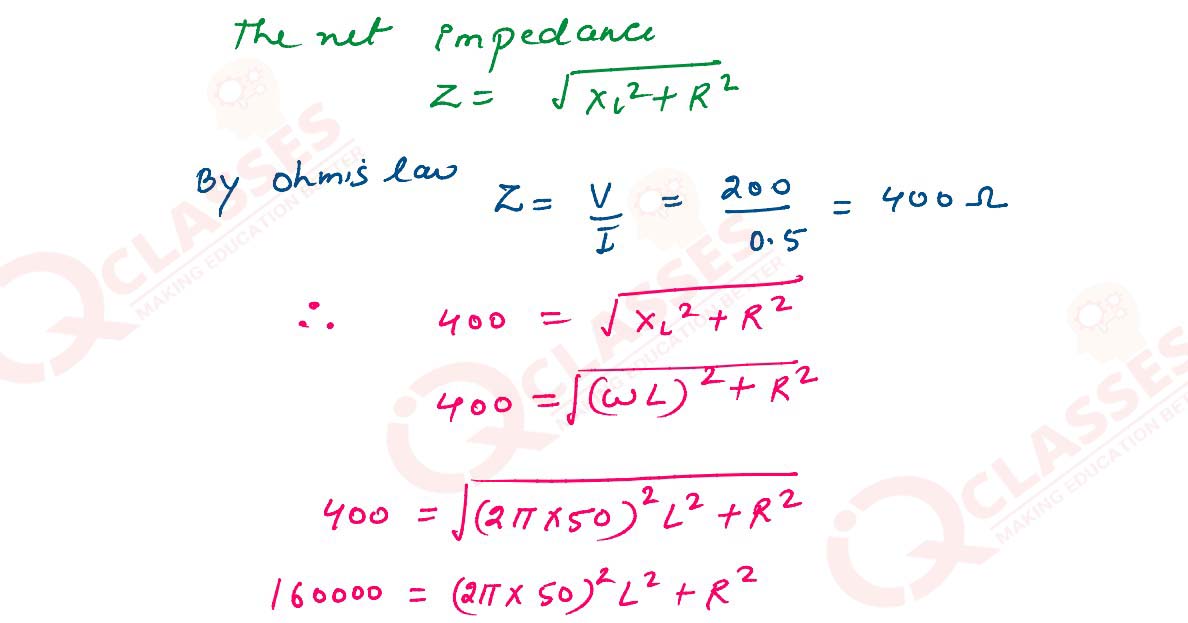 The net impedance
Z = √XL²+R²
By ohm's law Z = V/I = 200/0.5 = 400 Ω
∴ 400 = √XL²+R²
400 = √(ωL)²+R²
400 = √(2π×50)²L²+R²
160000 = (2π×50)²L²+R²
iQ CLASSES
MAKING EDUCATION BETTER
iQ CLASSES
MAKING EDUCATION BETTER
iQ CLASSES
MAKING EDUCATION BETTER